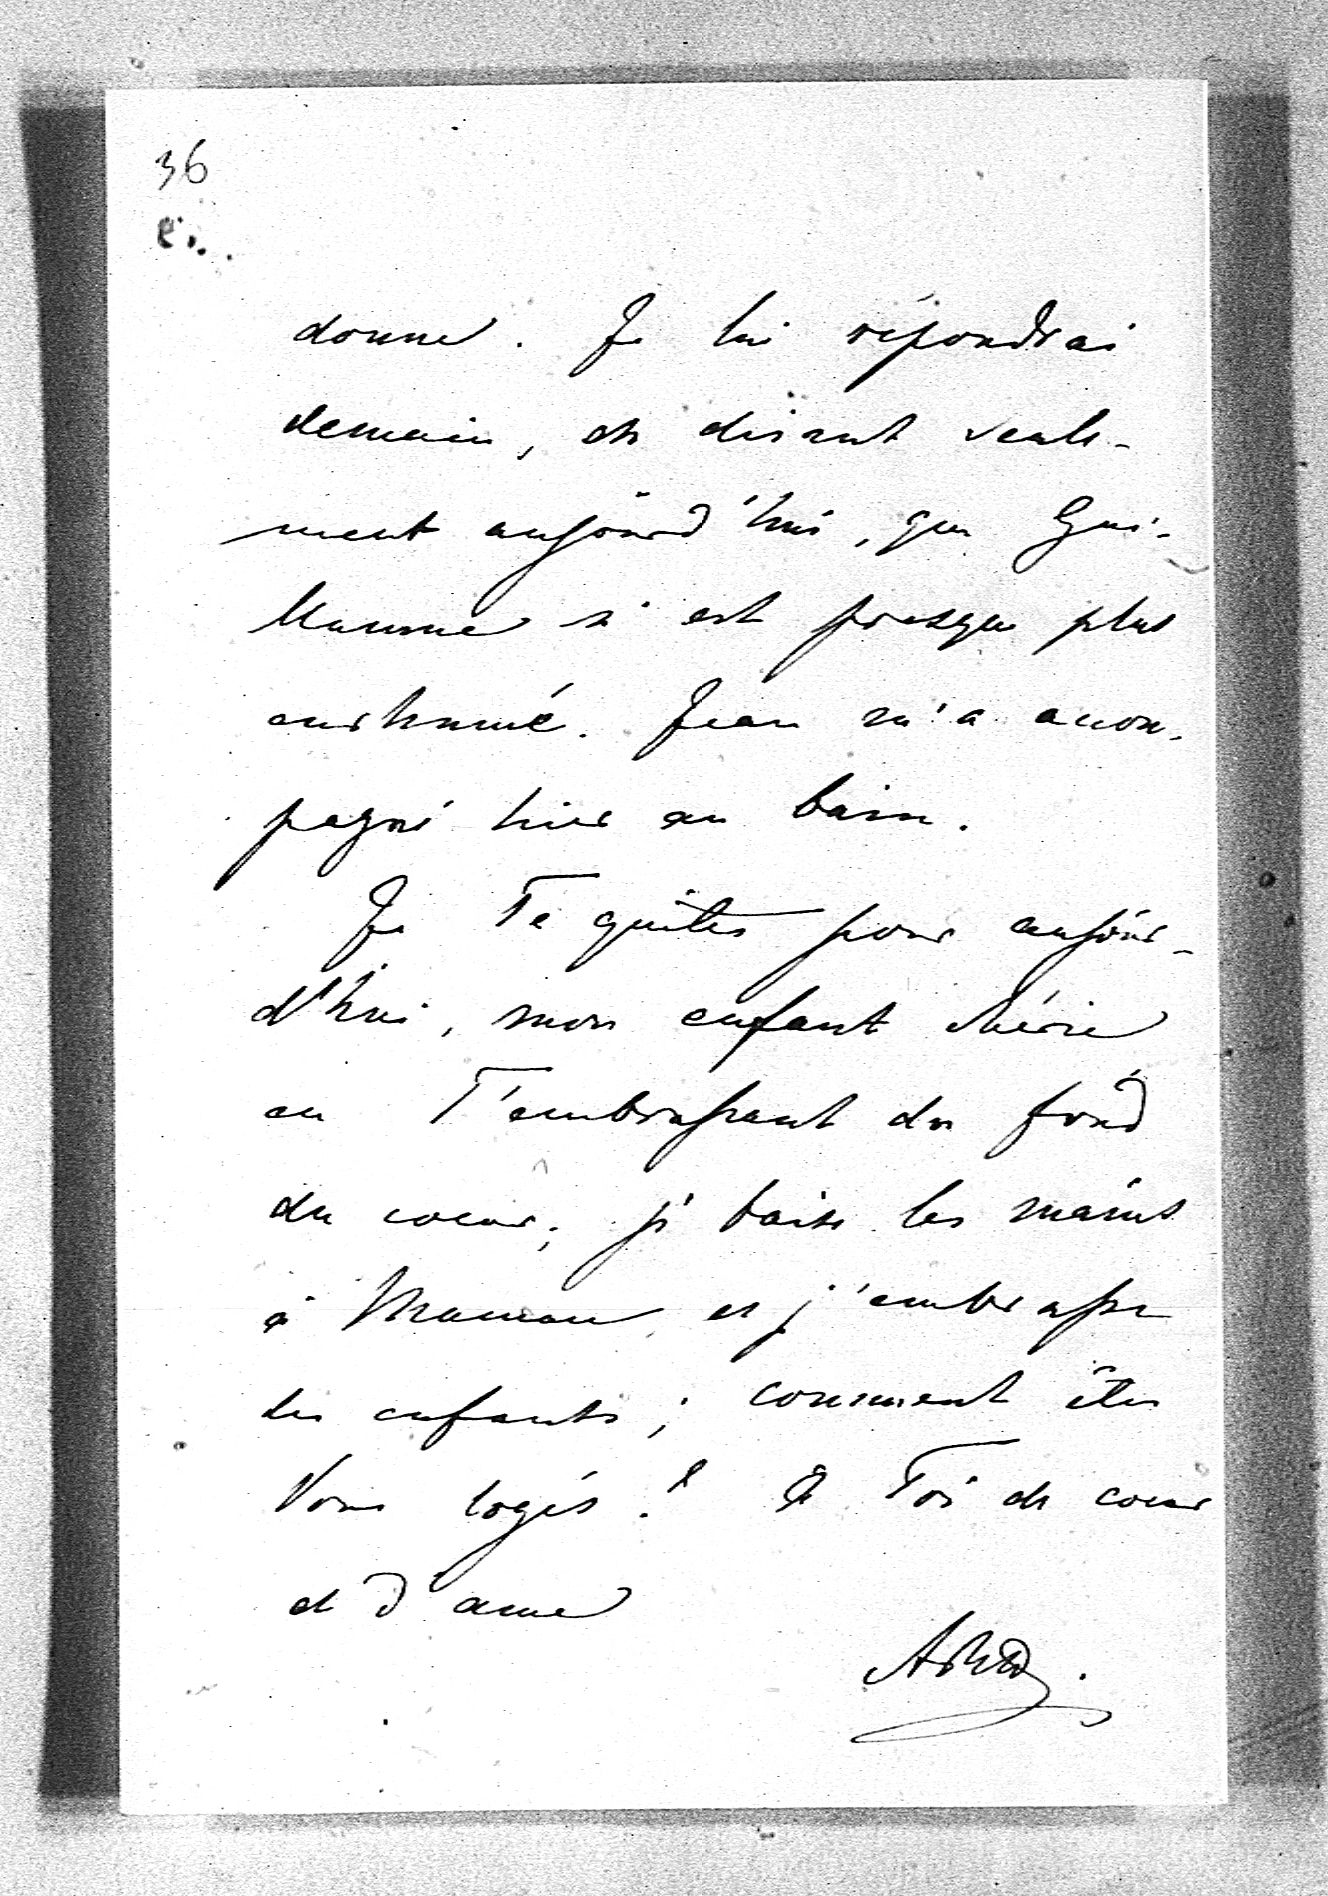 36
donne. Je lui répondrai
demain, en disant seule-
ment aujourd'hui, que Gui-
llaume n'est presque plus
enrhumé. Jean m'a accom-
pagné hier au bain.
Je Te quitte pour aujour-
d'hui, mon enfant chérie
en T'embrassant du fond
du coeur; je baise les mains
à Maman et j'embrasse
les enfants; comment êtes
Vous logés? à Toi de coeur
et d'ame